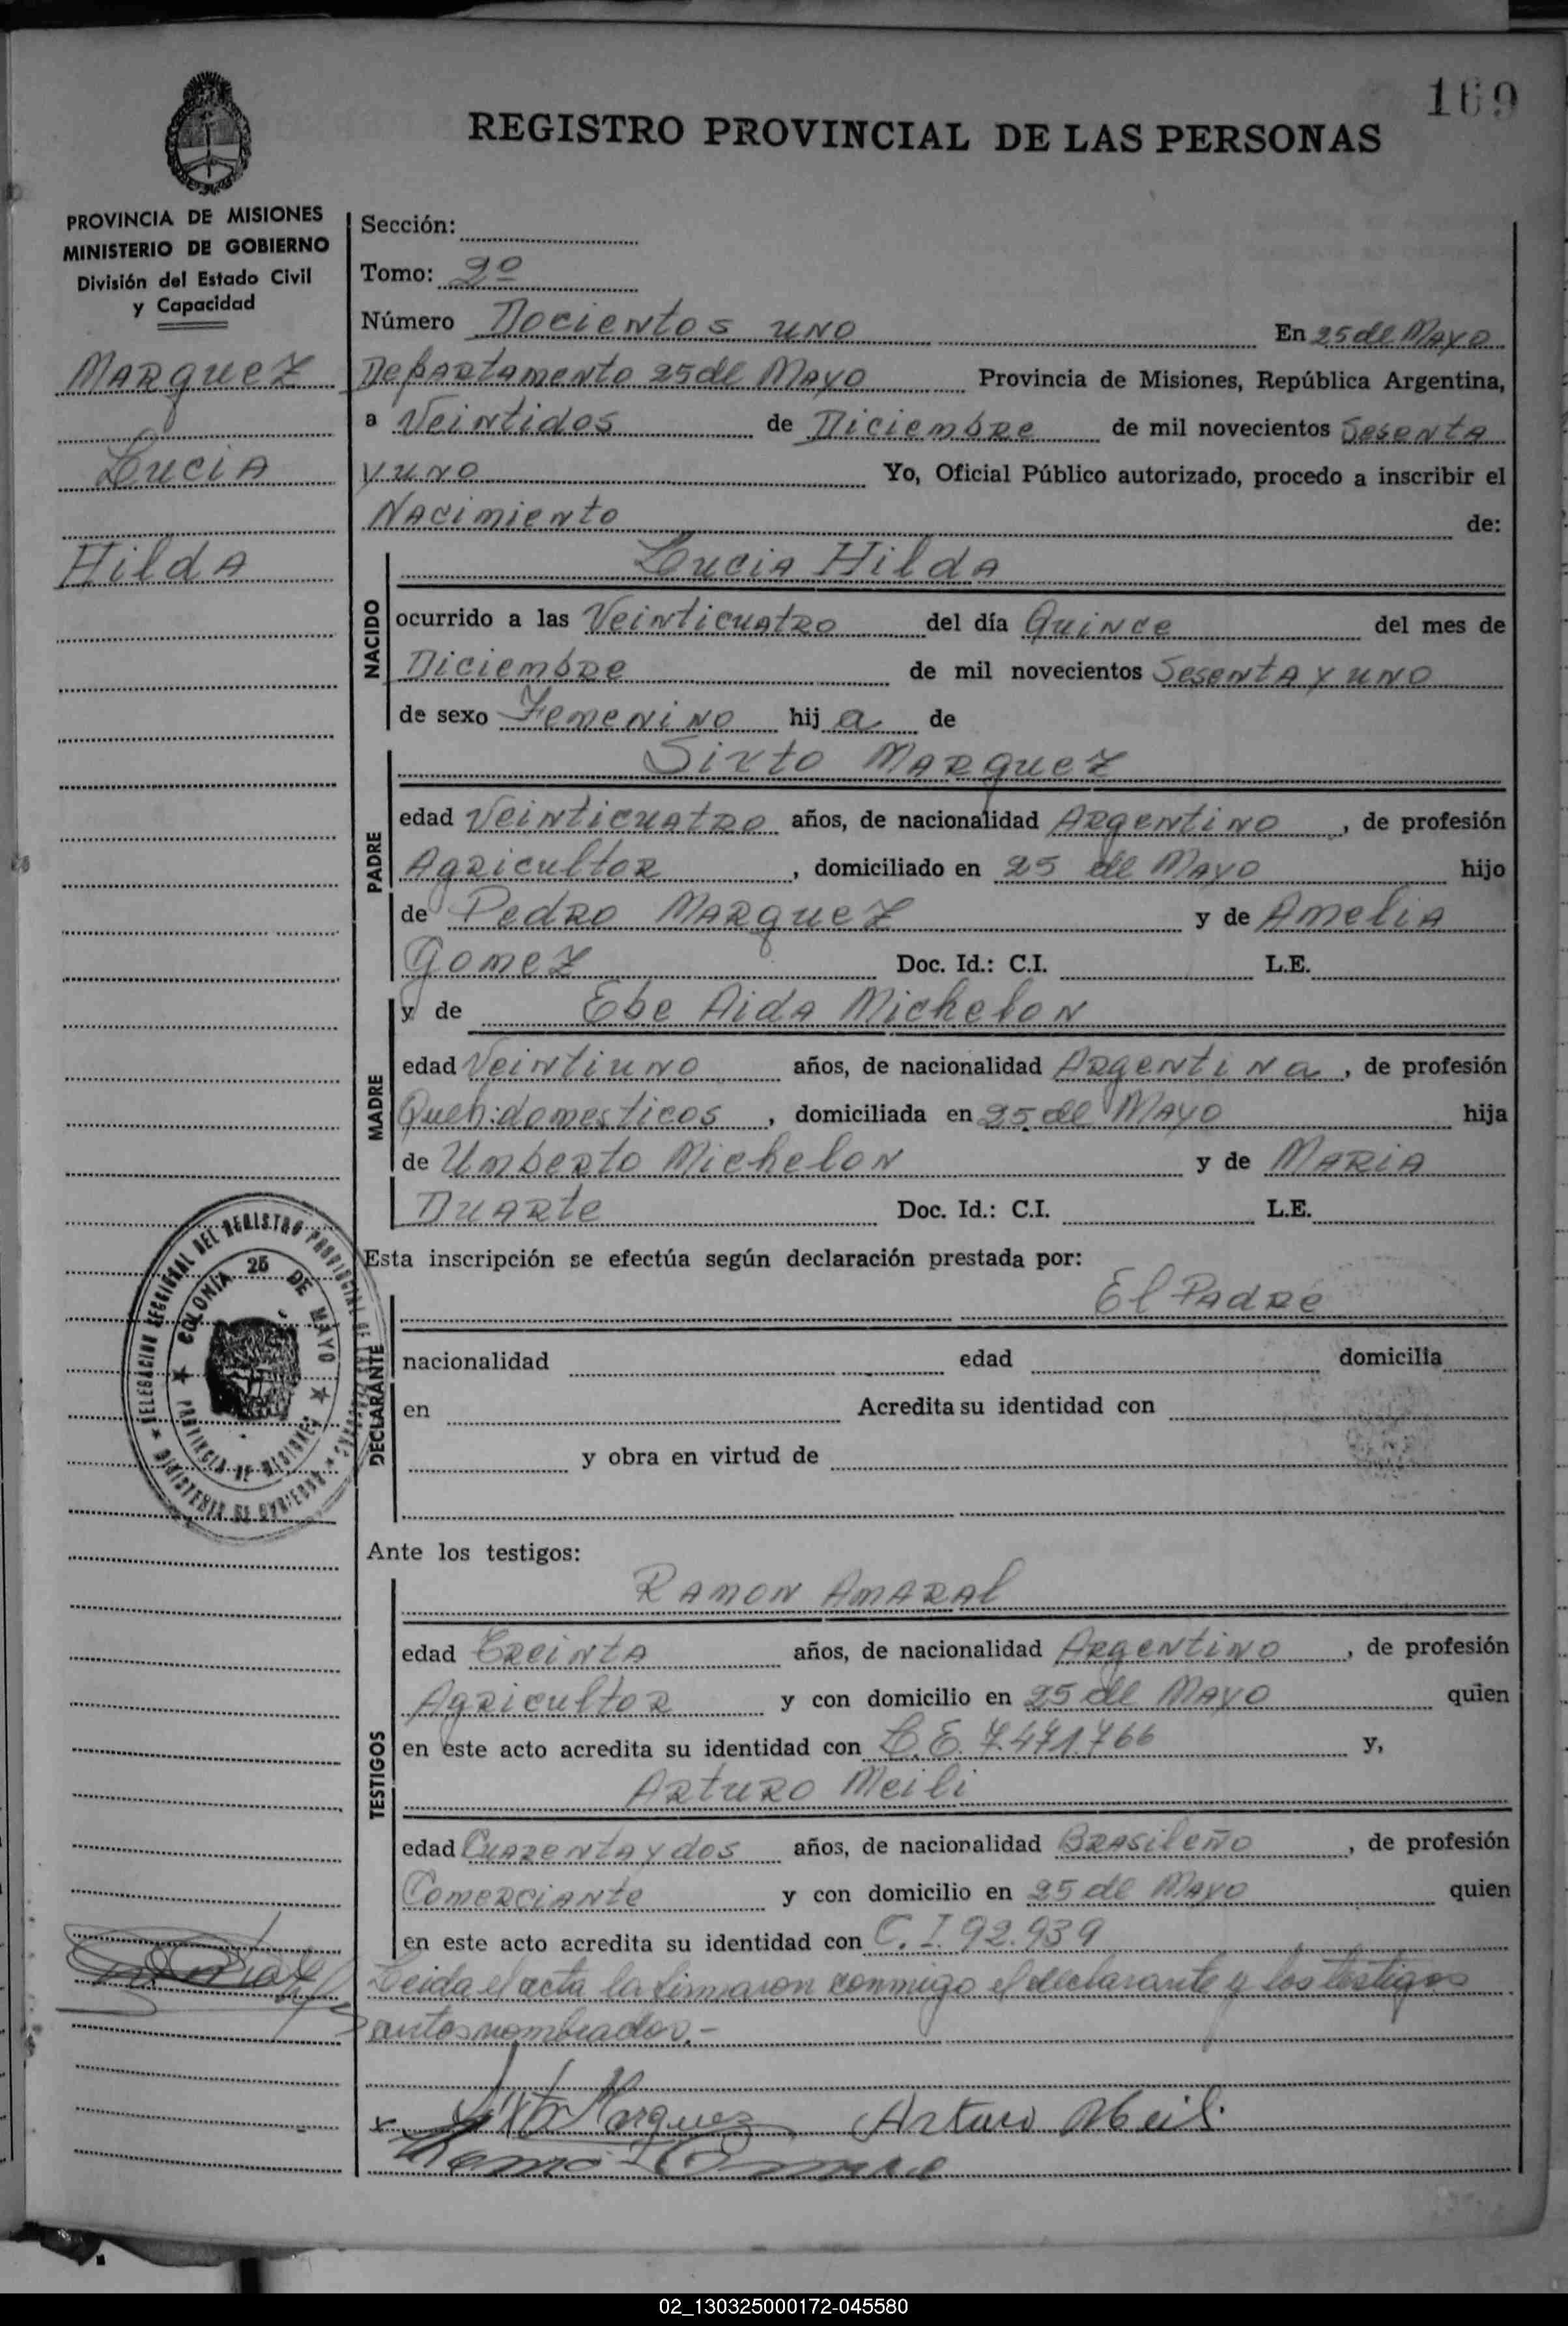 169
REGISTRO PROVINCIAL DE LAS PERSONAS
PROVINCIA DE MISIONES
MINISTERIO DE GOBIERNO
División del Estado Civil
y Capacidad
Marquez
Lucia
Hilda
Sección:
Tomo: 2º
Número Docientos uno En 25 de Mayo
Departamento 25 de Mayo Provincia de Misiones, República Argentina,
a Veintidos de Diciembre de mil novecientos Sesenta
y uno Yo, Oficial Público autorizado, procedo a inscribir el
Nacimiento de:
NACIDO
Lucia Hilda
ocurrido a las Veinticuatro del día Quince del mes de
Diciembre de mil novecientos Sesenta y uno
de sexo Femenino hij a de
PADRE
Sixto Marquez
edad Veinticuatro años, de nacionalidad Argentino, de profesión
Agricultor, domiciliado en 25 de Mayo hijo
de Pedro Marquez y de Amelia
Gomez Doc. Id.: C.I. L.E.
MADRE
y de Ebe Aida Michelon
edad Veintiuno años, de nacionalidad Argentina, de profesión
Queh: domesticos, domiciliada en 25 de Mayo hija
de Umberto Michelon y de Maria
Duarte Doc. Id.: C.I. L.E.
Esta inscripción se efectúa según declaración prestada por:
DECLARANTE
El Padre
nacionalidad edad domicilia
en Acredita su identidad con
y obra en virtud de
DELEGACION SECCIONAL DEL REGISTRO PROVINCIAL DE LAS PERSONAS
MINISTERIO DE GOBIERNO
COLONIA 25 DE MAYO
PROVINCIA DE MISIONES
Ante los testigos:
TESTIGOS
Ramon Amaral
edad Treinta años, de nacionalidad Argentino, de profesión
Agricultor y con domicilio en 25 de Mayo quien
en este acto acredita su identidad con L.E. 7.471.766 y,
Arturo Meili
edad Cuarenta y dos años, de nacionalidad Brasileño, de profesión
Comerciante y con domicilio en 25 de Mayo quien
en este acto acredita su identidad con C.I. 92.939
Leida el acta la firmaron conmigo el declarante y los testigos
antes nombrados.-
x Sixto Marquez Arturo Meili
02_130325000172-045580